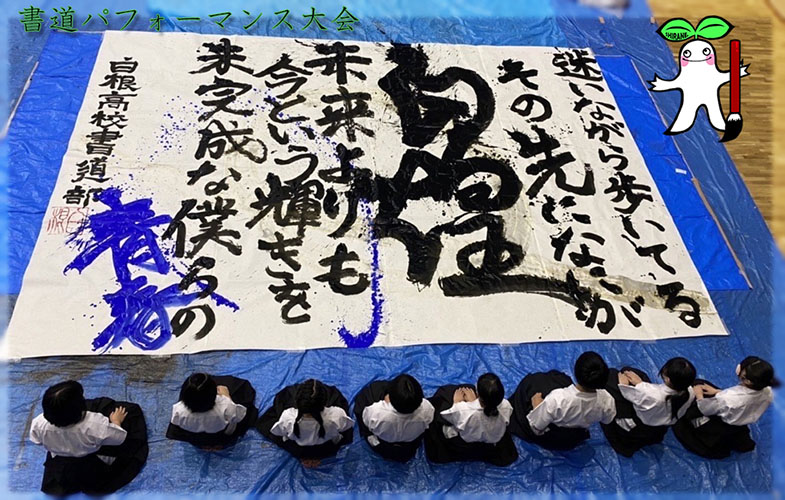 書道パフォーマンス大会
SHIRANE
迷いながら歩いてる
その先になにが
未来よりも
今という輝きを
未完成な僕らの
青春
白根高校書道部